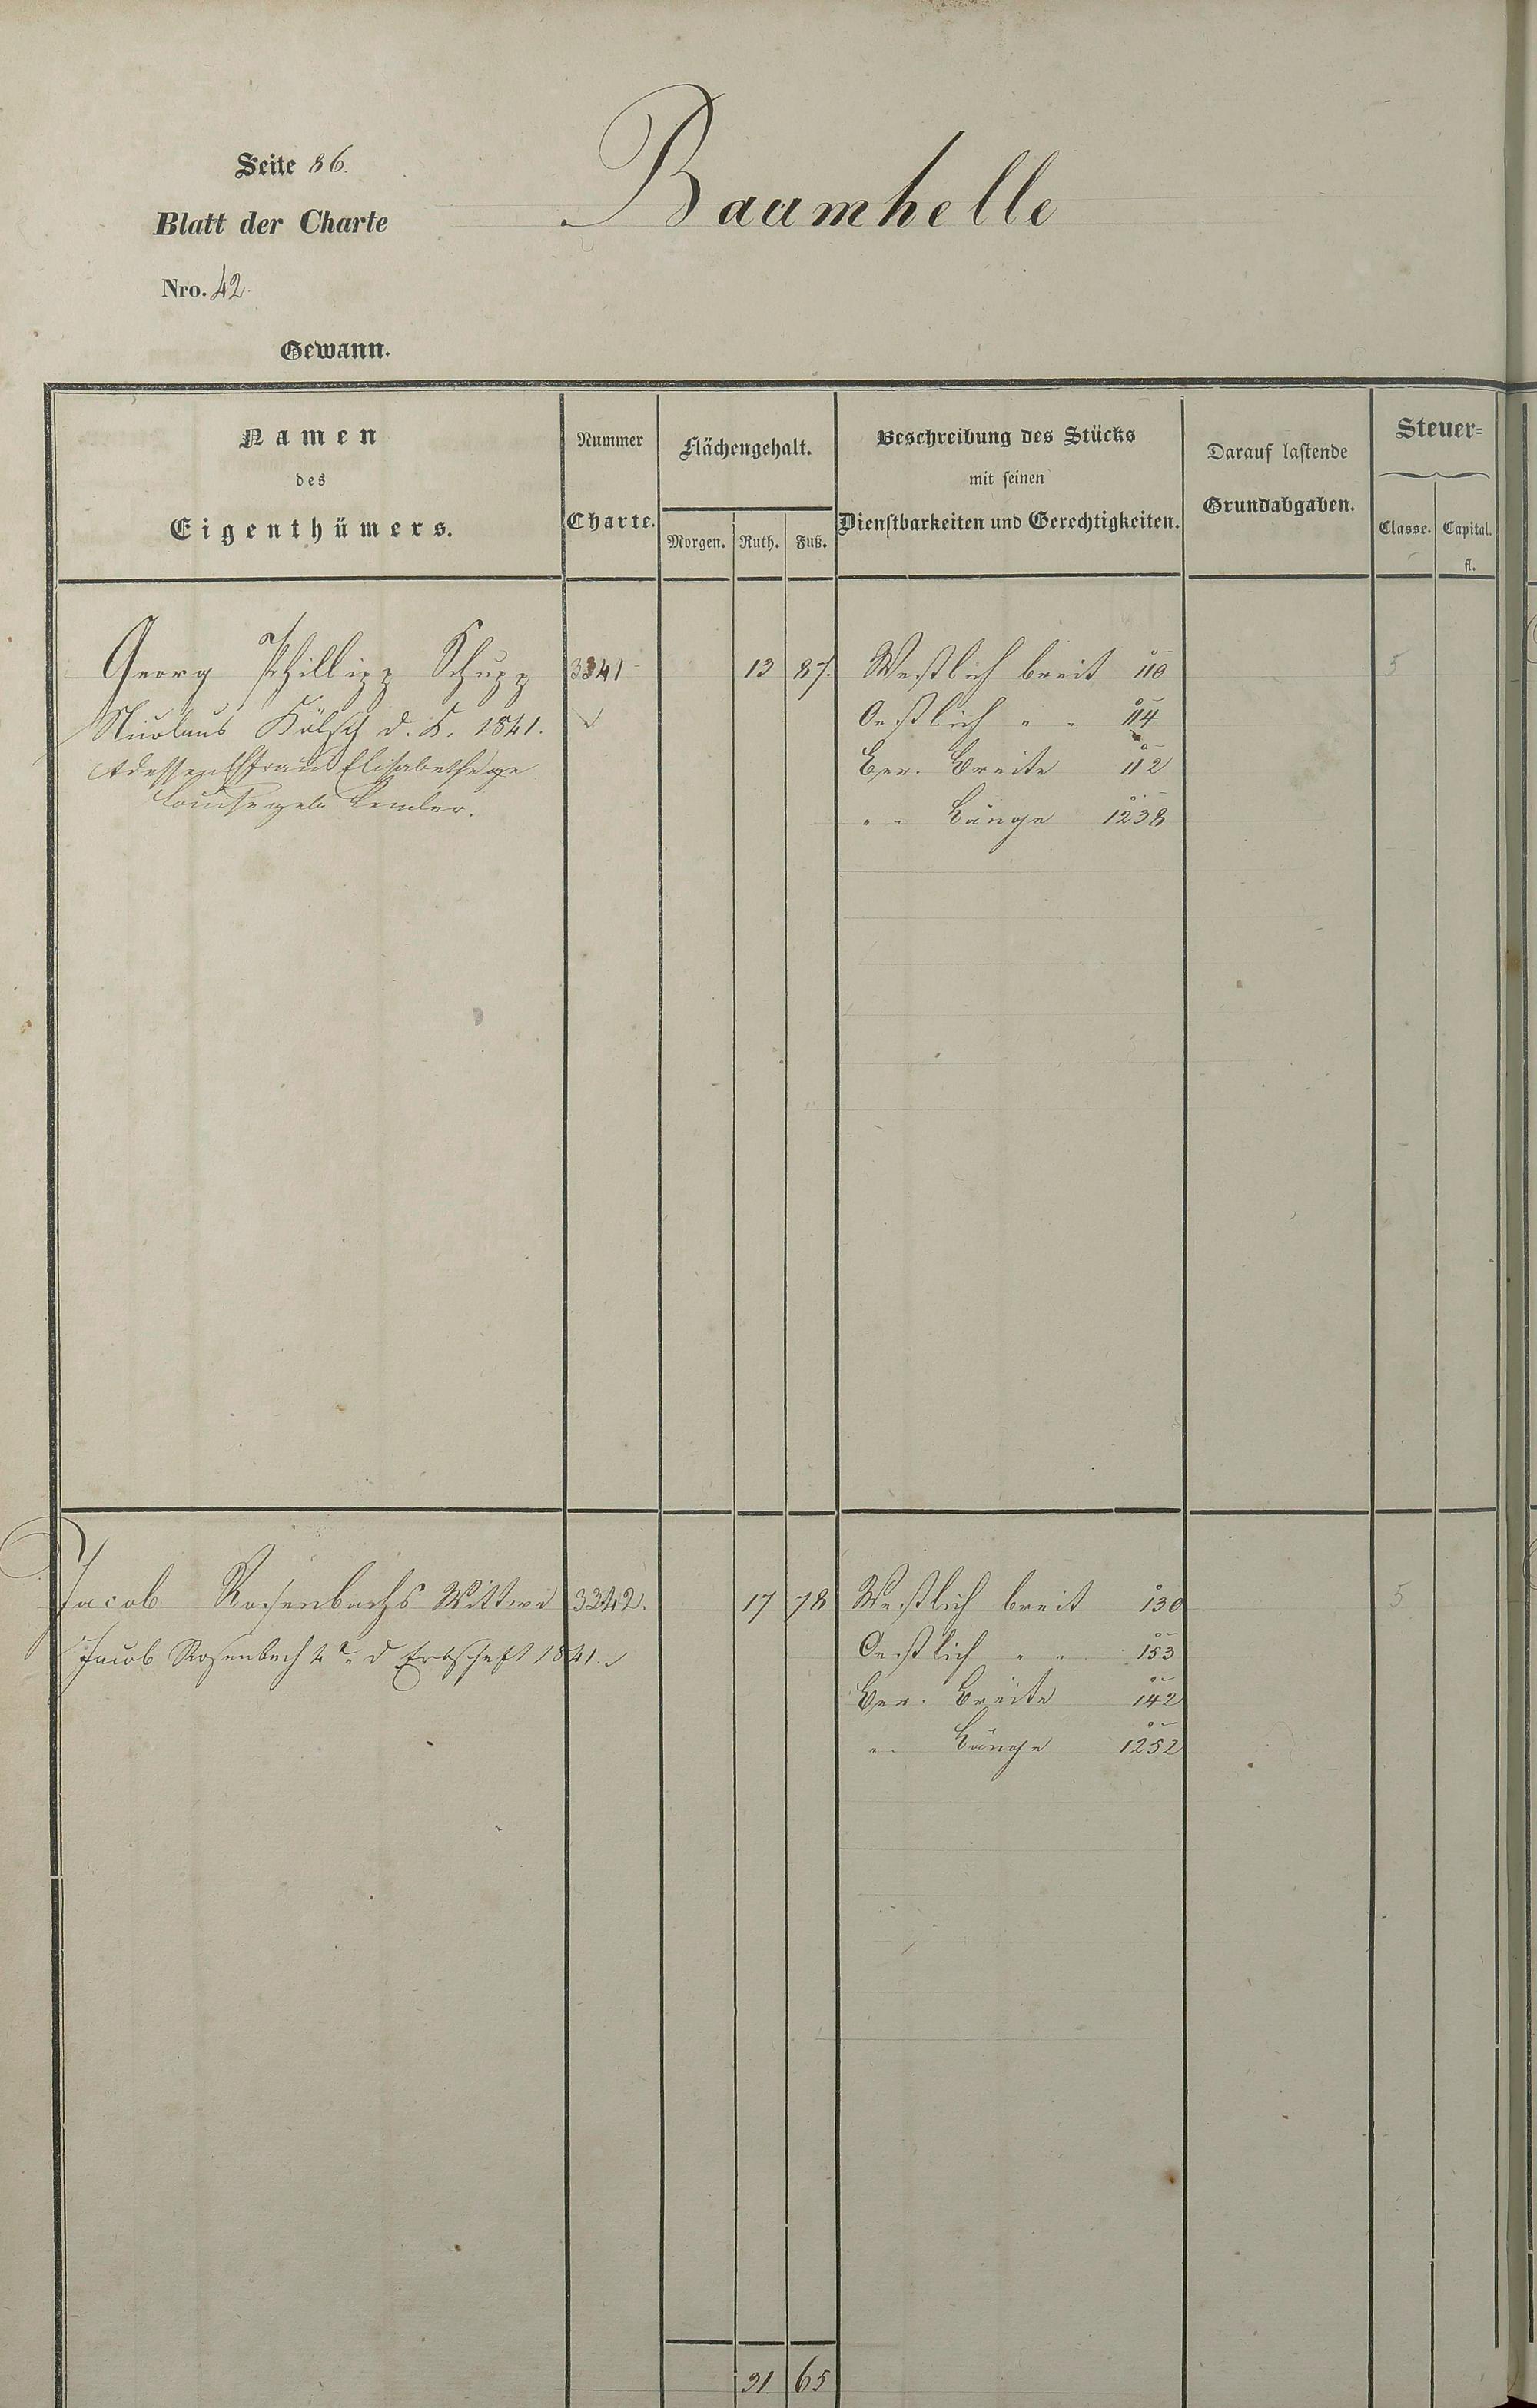 Seite 86.
Baumhelle
Blatt der Charte
Nro. 42.
Gewann.
Namen
des
Eigenthümers.
Nummer
Charte.
Flächengehalt.
Morgen. Ruth. Fuß.
Beschreibung des Stücks
mit seinen
Dienstbarkeiten und Gerechtigkeiten.
Darauf lastende
Grundabgaben.
Steuer-
Classe. Capital.
fl.
Georg Phillipp Schupp 3341 13 87. Westlich breit 110 5
Nicolaus Kölsch d. K. 1841. Oestlich " " 114
Elisabethe Ber. Breite 112
" " Länge 1238
Jacob Rosenbachs Wittwe 3342. 17 78 Westlich breit 130 5
Jacob Rosenbach 2r d Erbschaft 1841. Oestlich " " 153
Ber. Breite 142
" " Länge 1252
31 65